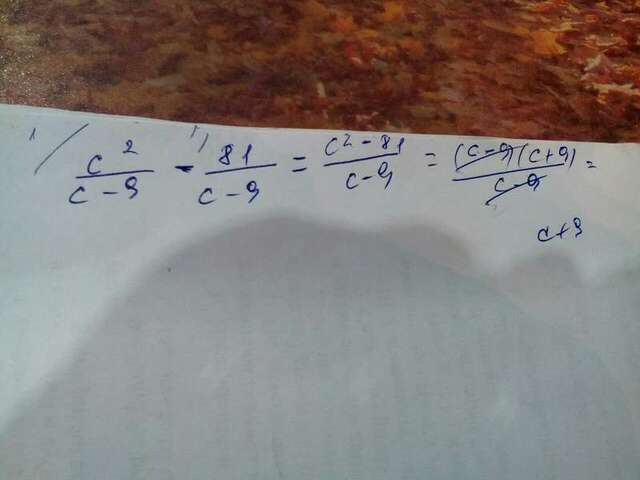 c²/(c-9) - 81/(c-9) = (c²-81)/(c-9) = (c-9)(c+9)/(c-9) =
c+9